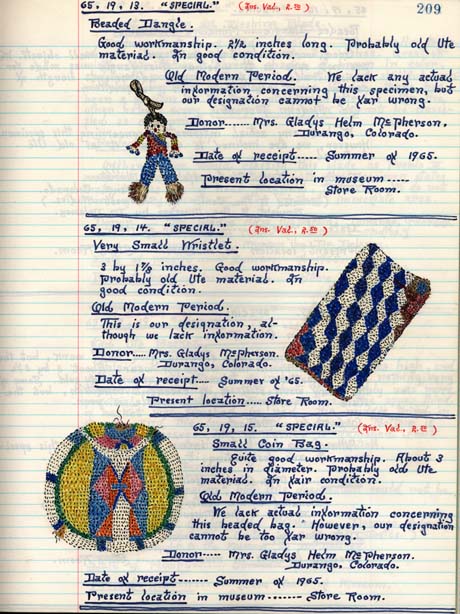 209
65, 19, 13. "SPECIAL." (Ins. Val., 2.00)
Beaded Dangle.
Good workmanship. 2 1/2 inches long. Probably old Ute
material. In good condition.
Old Modern Period. We lack any actual
information concerning this specimen, but
our designation cannot be far wrong.
Donor....... Mrs. Gladys Helm McPherson,
Durango, Colorado.
Date of receipt----- Summer of 1965.
Present location in museum -----
Store Room.
65, 19, 14. "SPECIAL." (Ins. Val., 2.00)
Very Small Wristlet.
3 by 1 7/8 inches. Good workmanship.
Probably old Ute material. In
good condition.
Old Modern Period.
This is our designation, al-
though we lack information.
Donor..... Mrs. Gladys McPherson.
Durango, Colorado.
Date of receipt.... Summer of '65.
Present location..... Store Room.
65, 19, 15. "SPECIAL." (Ins. Val., 2.00)
Small Coin Bag.
Quite good workmanship. About 3
inches in diameter. Probably old Ute
material. In fair condition.
Old Modern Period.
We lack actual information concerning
this beaded bag. However, our designation
cannot be too far wrong.
Donor----- Mrs. Gladys Helm McPherson.
Durango, Colorado.
Date of receipt------- Summer of 1965.
Present location in museum ------- Store Room.